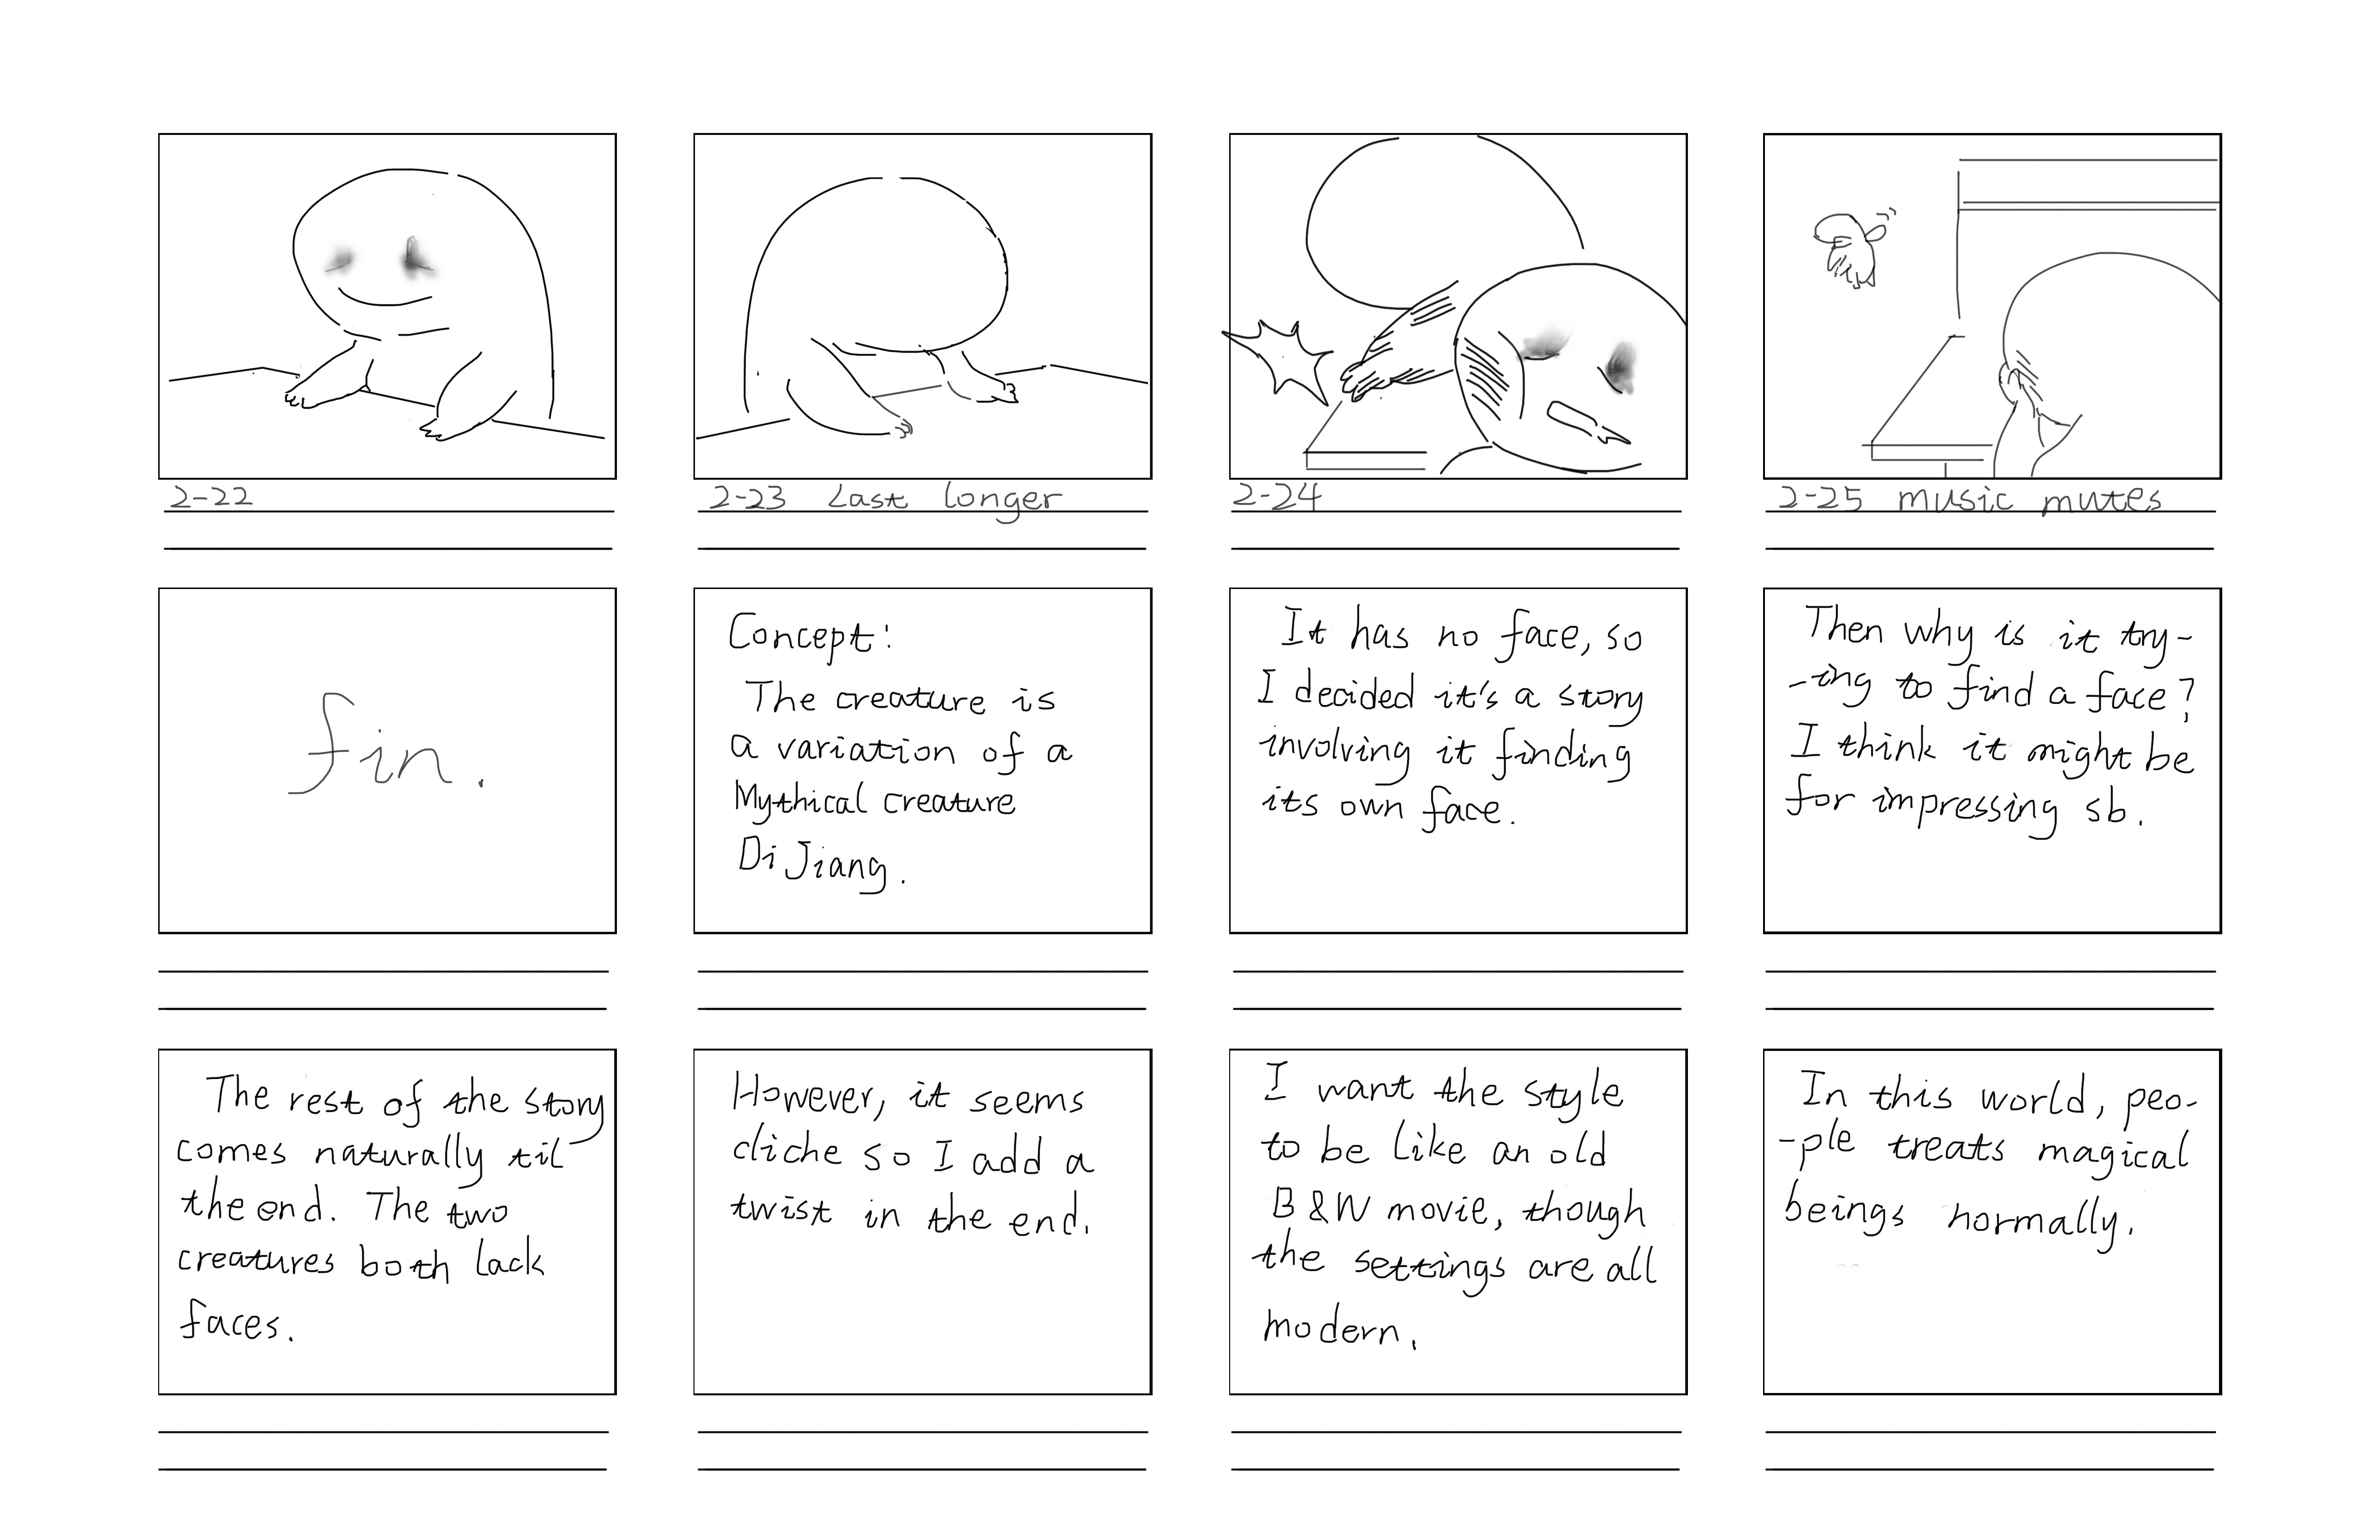 2-22
2-23 Last longer
2-24
2-25 music mutes
fin.
Concept:
The creature is
a variation of a
Mythical creature
Di Jiang.
It has no face, so
I decided it's a story
involving it finding
its own face.
Then why is it try-
-ing to find a face?
I think it might be
for impressing sb.
The rest of the story
comes naturally til
the end. The two
creatures both lack
faces.
However, it seems
cliche so I add a
twist in the end.
I want the style
to be like an old
B&W movie, though
the settings are all
modern.
In this world, peo-
-ple treats magical
beings normally.